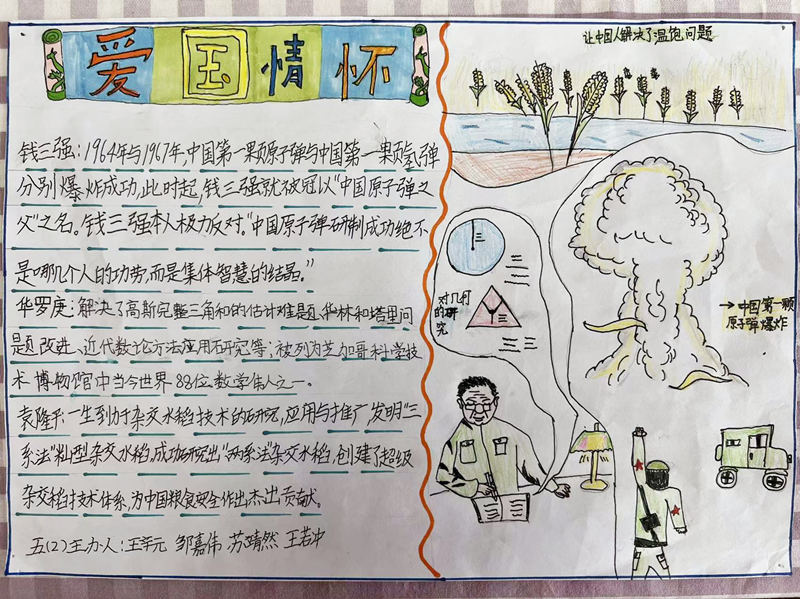 爱国情怀
钱三强:1964年与1967年,中国第一颗原子弹与中国第一颗氢弹
分别爆炸成功,此时起,钱三强就被冠以"中国原子弹之
父"之名。钱三强本人极力反对."中国原子弹研制成功绝不
是哪几个人的功劳,而是集体智慧的结晶。"
华罗庚:解决了高斯完整三角和的估计难题、华林和塔里问
题改进、近代数论方法应用研究等;被列为芝加哥科学技
术博物馆中当今世界88位数学伟人之一。
袁隆平:一生致力于杂交水稻技术的研究,应用与推广发明"三
系法"籼型杂交水稻,成功研究出"两系法"杂交水稻,创建了超级
杂交稻技术体系,为中国粮食安全作出杰出贡献。
五(2)主办人:王辛元 邹嘉伟 苏靖然 王若冲
让中国人解决了温饱问题
对几何
的研
究
→中国第一颗
原子弹爆炸